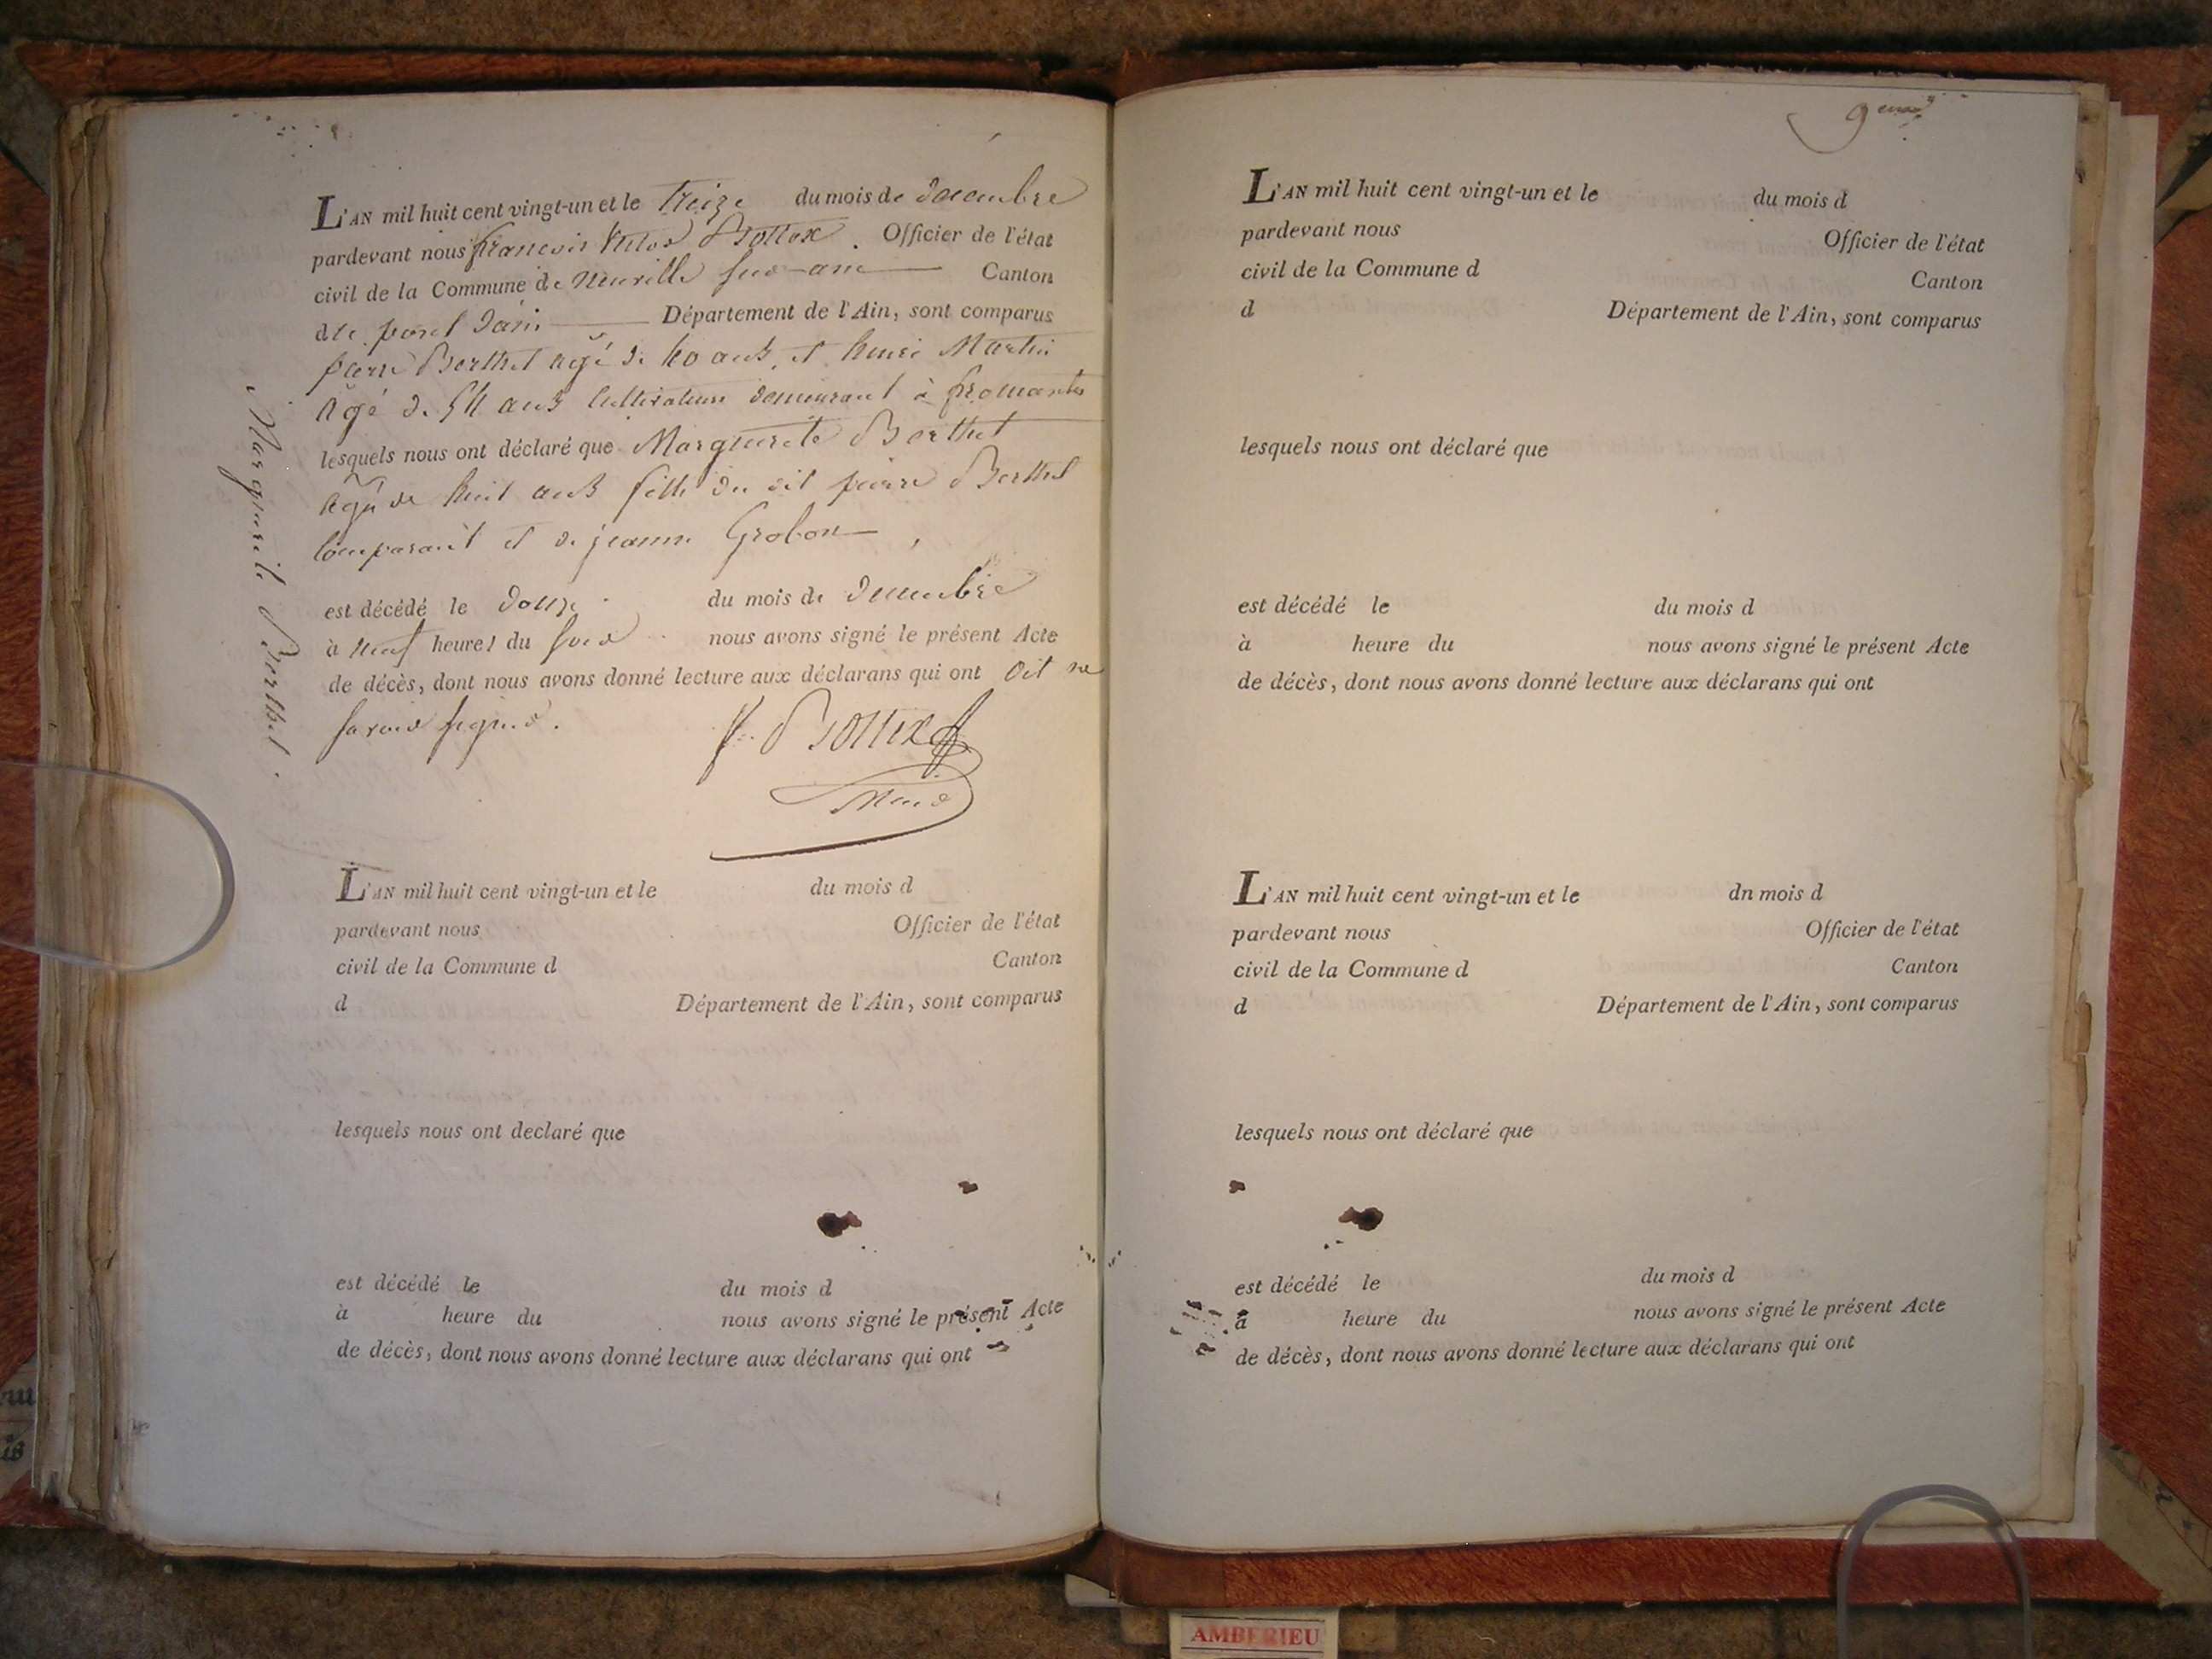 L'AN mil huit cent vingt-un et le treize du mois de decembre
pardevant nous francois Bottex . Officier de l'état
civil de la Commune de Neuville sur ain Canton
de pont dain Département de l'Ain, sont comparus
pierre Berthet agé de 40 ans, et henri Martin
agé de 54 ans cultivateurs demeurant à fromentes
lesquels nous ont déclaré que Marguerite Berthet
agée de huit ans fille du dit pierre Berthet
comparant et de jeanne Grobon ,
est décédé le douze du mois de decembre
à neuf heures du soir nous avons signé le présent Acte
de décès, dont nous avons donné lecture aux déclarans qui ont dit ne
savoir signer.
Bottex
Maire
Marguerite Berthet.
L'AN mil huit cent vingt-un et le du mois d
pardevant nous Officier de l'état
civil de la Commune d Canton
d Département de l'Ain, sont comparus
lesquels nous ont declaré que
est décédé le du mois d
à heure du nous avons signé le présent Acte
de décès, dont nous avons donné lecture aux déclarans qui ont
L'AN mil huit cent vingt-un et le du mois d
pardevant nous Officier de l'état
civil de la Commune d Canton
d Département de l'Ain, sont comparus
lesquels nous ont déclaré que
est décédé le du mois d
à heure du nous avons signé le présent Acte
de décès, dont nous avons donné lecture aux déclarans qui ont
L'AN mil huit cent vingt-un et le dn mois d
pardevant nous Officier de l'état
civil de la Commune d Canton
d Département de l'Ain, sont comparus
lesquels nous ont déclaré que
est décédé le du mois d
à heure du nous avons signé le présent Acte
de décès, dont nous avons donné lecture aux déclarans qui ont
AMBERIEU